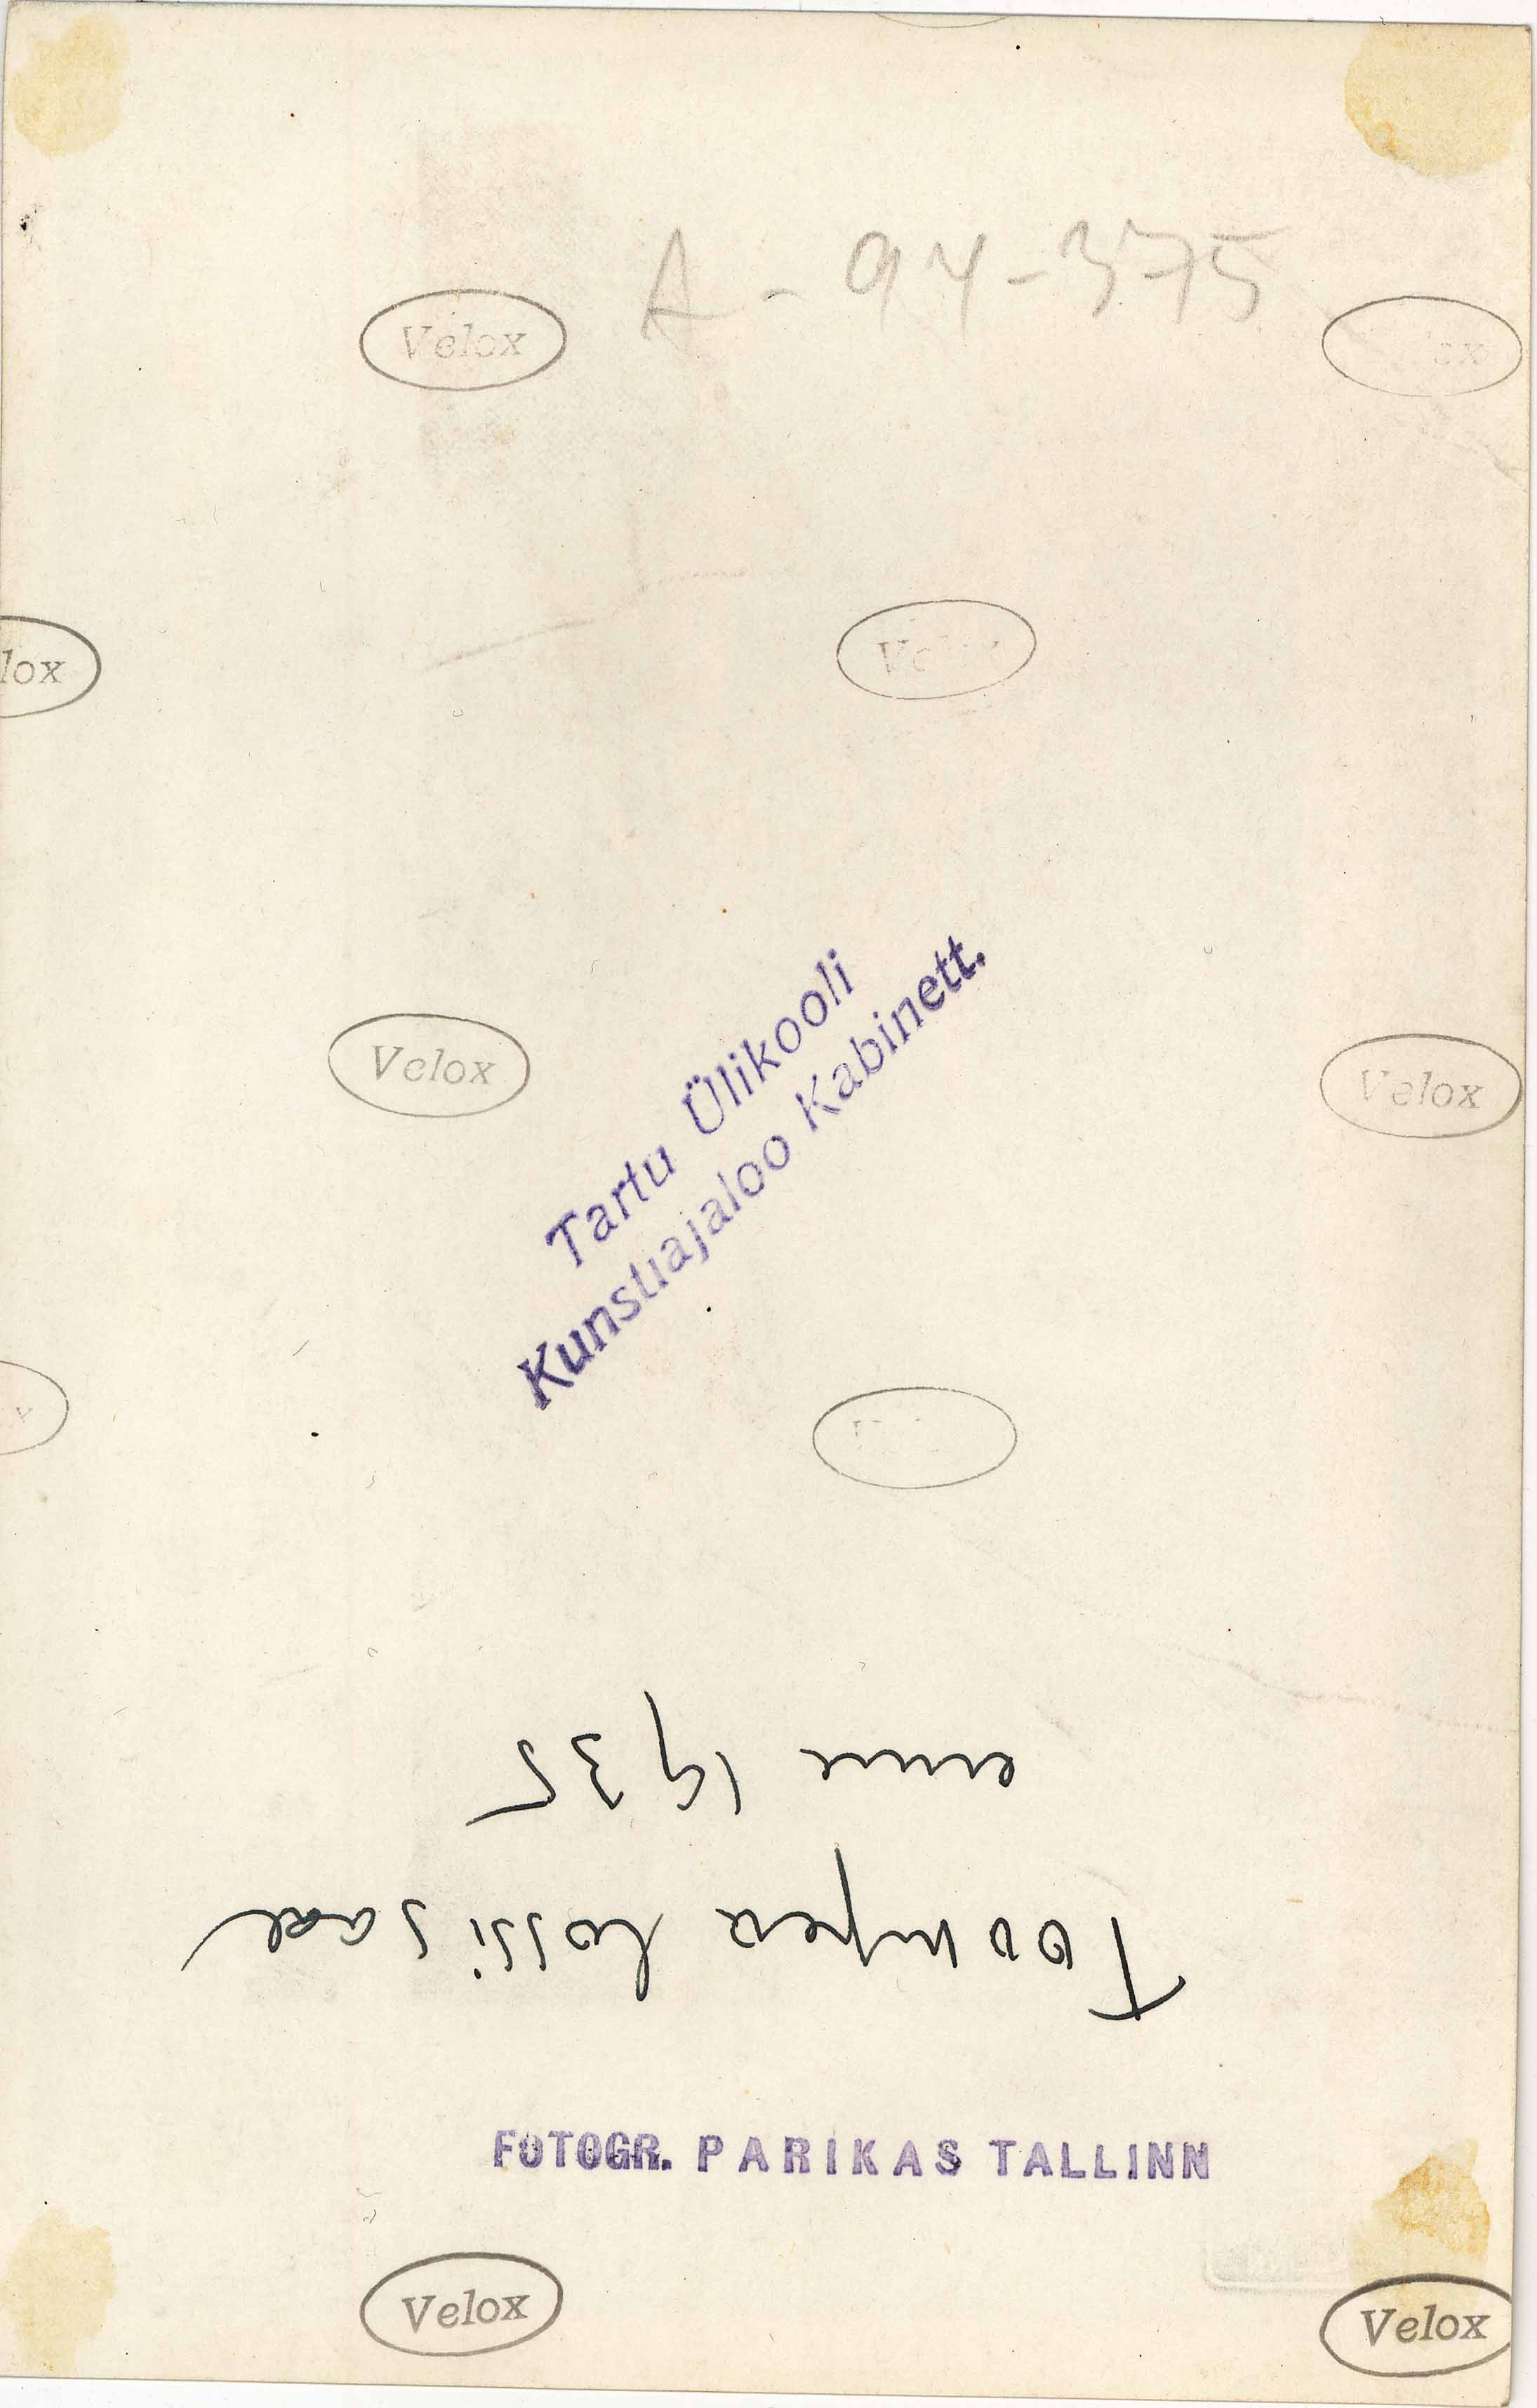 A-94-375
Velox
ox
lox
Velox
Velox
Tartu Ülikooli
Kunstiajaloo Kabinett.
Toompea lossi saal
enne 1935
FOTOGR. PARIKAS TALLINN
Velox
Velox